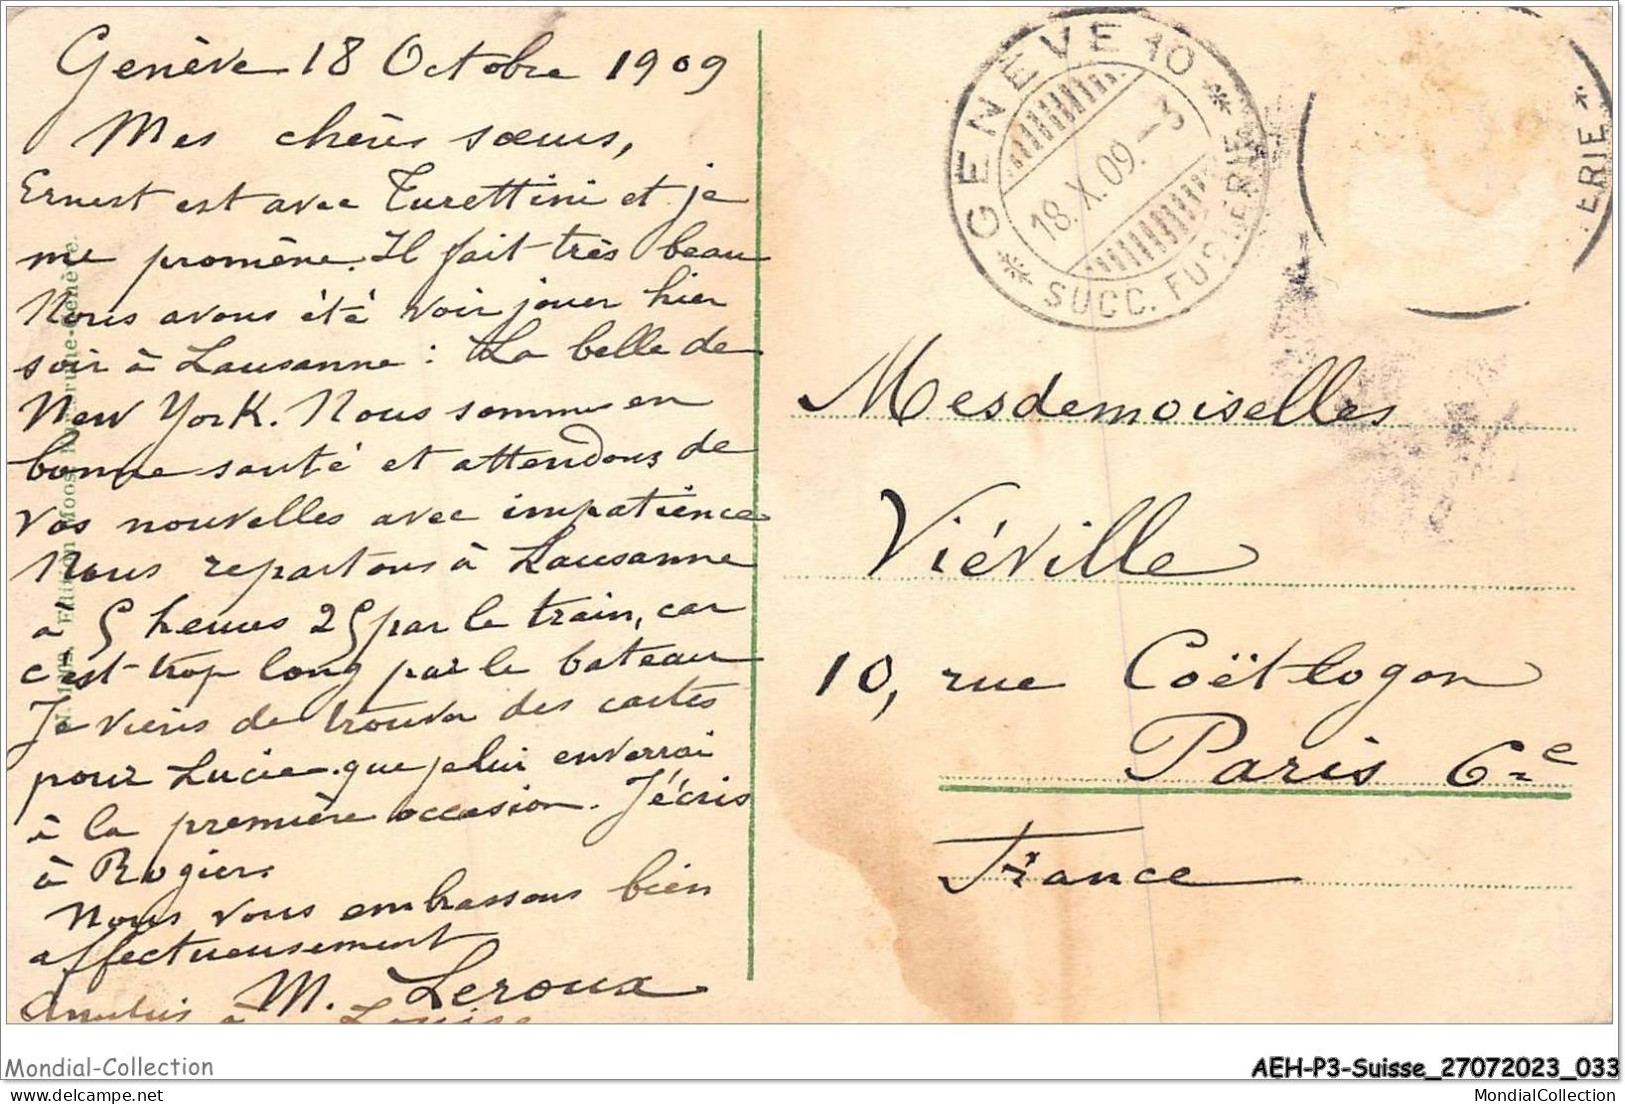 Genève 18 Octobre 1909
Mes chères sœurs,
Ernest est avec Turettini et je
me promène. Il fait très beau
Nous avons été voir jouer hier
soir à Lausanne : La belle de
New York. Nous sommes en
bonne santé et attendons de
vos nouvelles avec impatience
Nous repartons à Lausanne
à 5 heures 25 par le train, car
c'est trop long par le bateau
Je viens de trouver des cartes
pour Lucie que je lui enverrai
à la première occasion. J'écris
à Rogier.
Nous vous embrassons bien
affectueusement
M. Leroux
à Louise
Edition Moos
Genève.
GENÈVE 10
18.X.09.-3
SUCC. FUSTERIE
ERIE *
Mesdemoiselles
Viéville
10, rue Coëtlogon
Paris 6e
France
Mondial-Collection
AEH-P3-Suisse_27072023_033
delcampe.net
MondialCollection